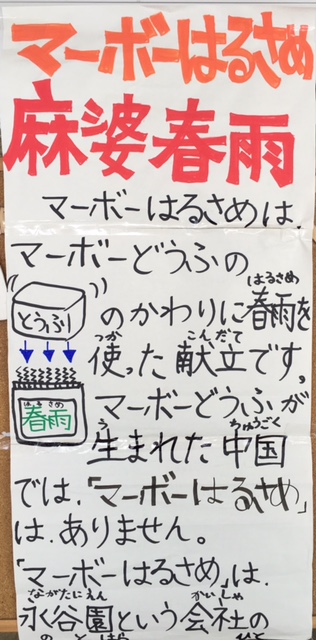 マーボーはるさめ
麻婆春雨
マーボーはるさめは
マーボーどうふの
はるさめ
とうふ
のかわりに春雨を
つか こんだて
使った献立です、
はるさめ
春雨
マーボーどうふが
う ちゅうごく
生まれた中国
では、「マーボーはるさめ」
は、ありません。
「マーボーはるさめ」は、
ながたにえん かいしゃ
永谷園という会社の